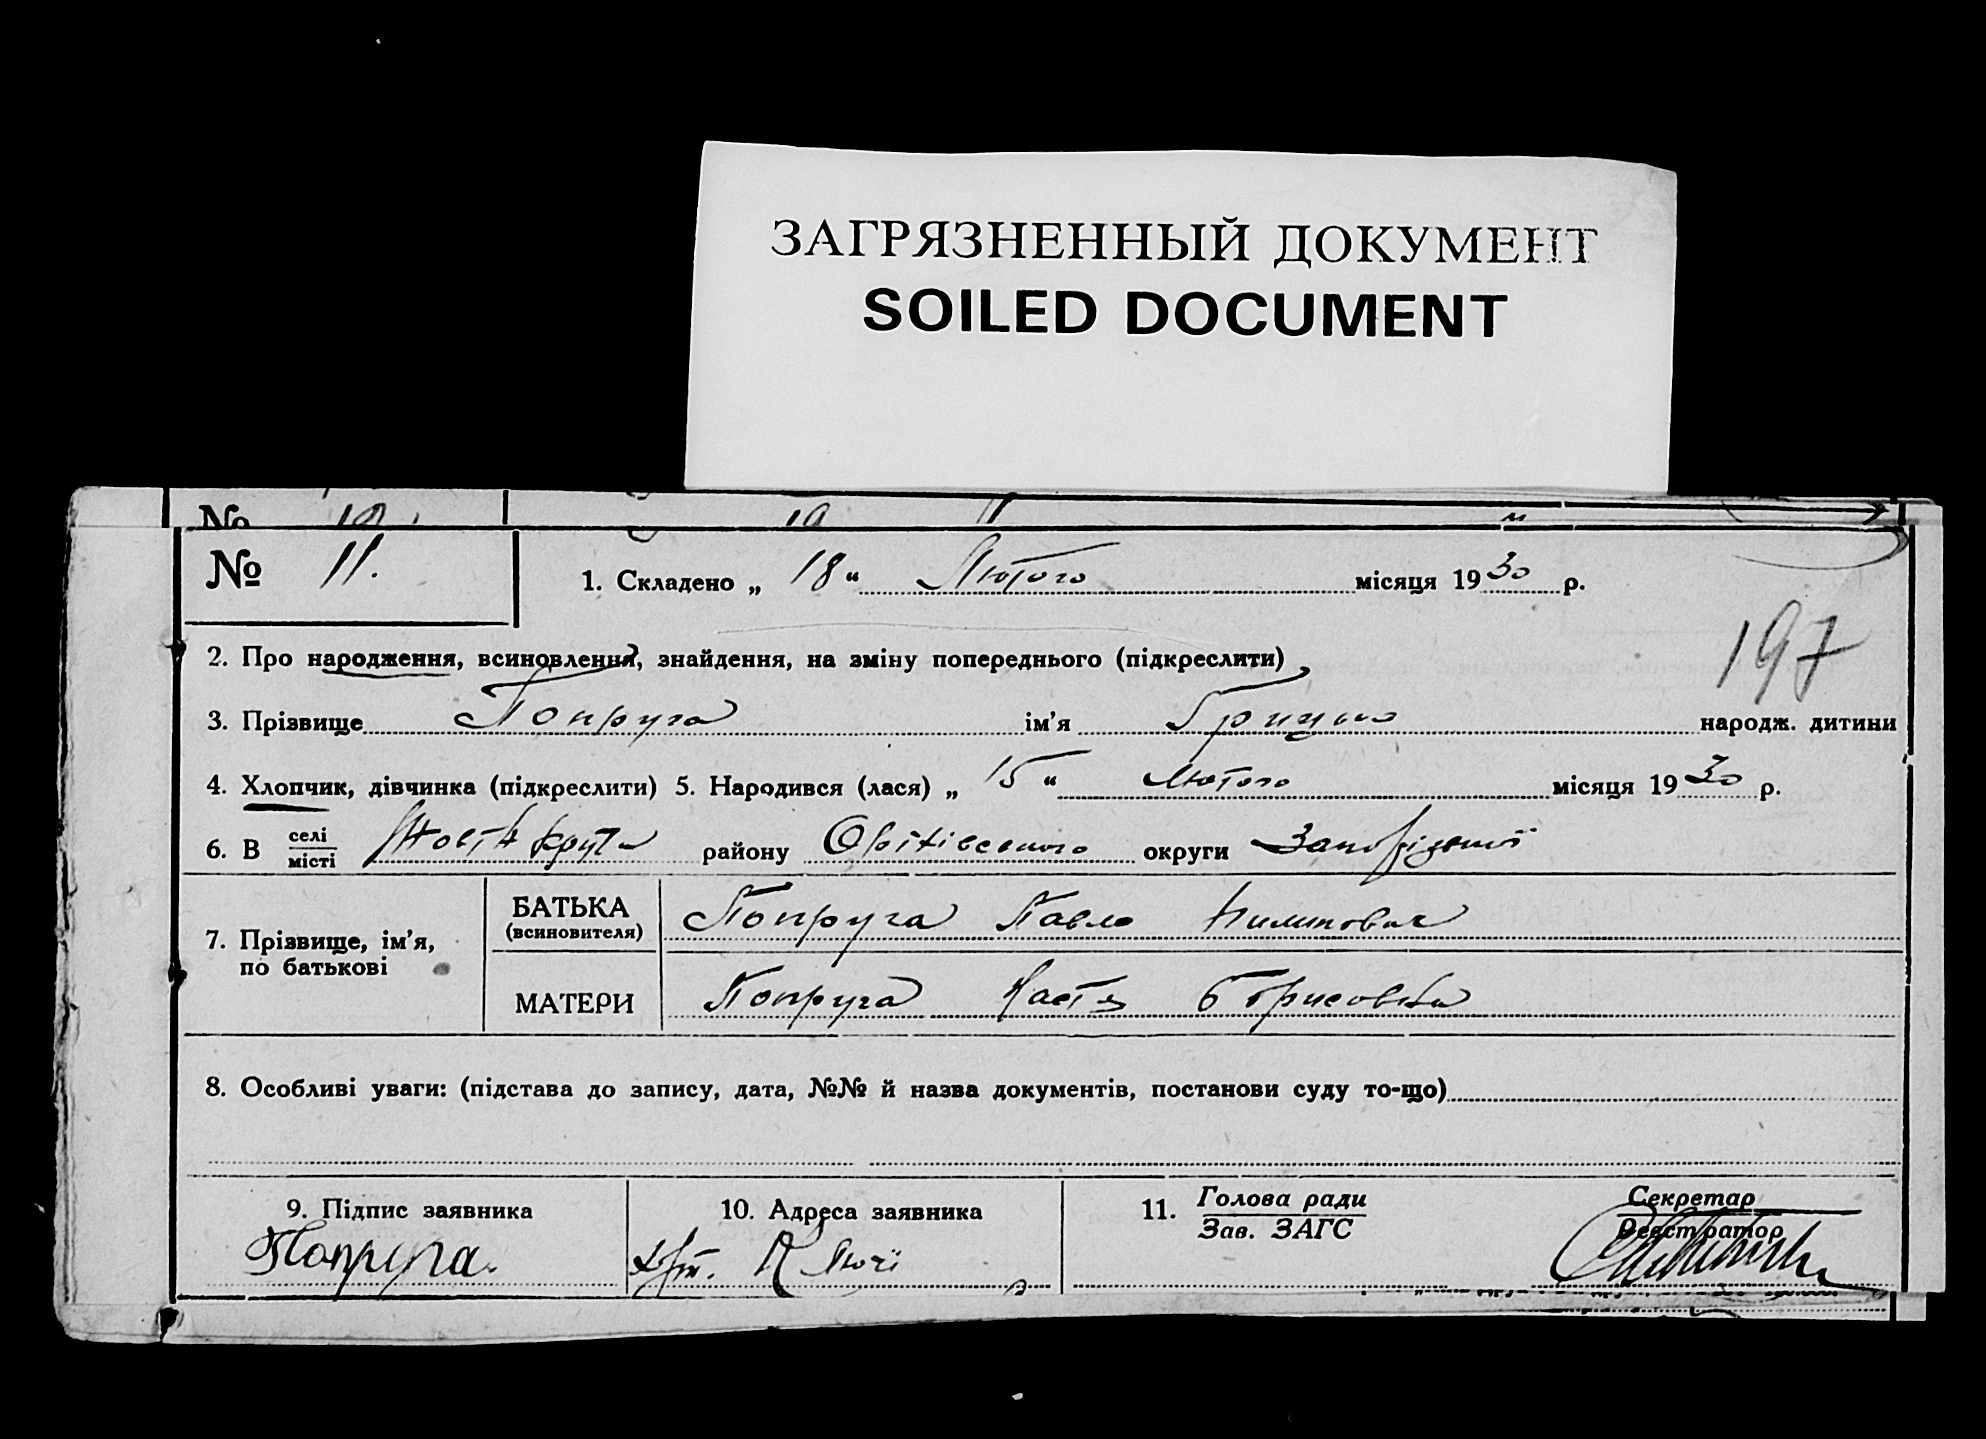 ЗАГРЯЗНЕННЫЙ ДОКУМЕНТ
SOILED DOCUMENT
№ 11.
1. Складено „ 18 “ Лютого місяця 1930 р.
197
2. Про народження, всиновлення, знайдення, на зміну попереднього (підкреслити)
3. Прізвище Попруга ім'я Грицько народж. дитини
4. Хлопчик, дівчинка (підкреслити) 5. Народився (лася) „ 15 “ Лютого місяця 1930 р.
6. В селі місті району Оріхівського округи Запорізької
7. Прізвище, ім'я, по батькові
БАТЬКА (всиновителя) Попруга Павло Пилипович
МАТЕРИ Попруга Настя Борисовна
8. Особливі уваги: (підстава до запису, дата, №№ й назва документів, постанови суду то-що)
9. Підпис заявника
Попруга.
10. Адреса заявника
11. Голова ради
Зав. ЗАГС
Секретар
Реєстратор